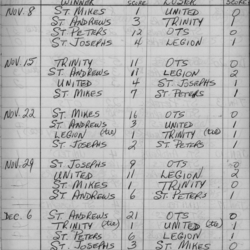 WINNER SCORE LOSER SCORE
NOV. 8 ST. MIKES 1 UNITED 0
ST. ANDREWS 3 TRINITY 1
ST. PETERS 12 OTS 0
ST. JOSEPHS 4 LEGION 1
NOV. 15 TRINITY 11 OTS 0
ST. ANDREWS 11 LEGION 2
UNITED 4 ST. JOSEPHS 1
ST. MIKES 7 ST. PETERS 1
NOV. 22 ST. MIKES 16 OTS 0
ST. ANDREWS 3 UNITED 1
LEGION (tie) 1 TRINITY (tie) 1
ST. JOSEPHS 2 ST. PETERS 1
NOV. 29 ST. JOSEPHS 9 OTS 0
UNITED 11 LEGION 2
ST. MIKES 1 TRINITY 0
ST. ANDREWS 6 ST. PETERS 1
DEC. 6 ST. ANDREWS 21 OTS 0
TRINITY (tie) 1 UNITED (tie) 1
ST. PETERS 6 LEGION 1
ST. JOSEPHS 3 ST. MIKES 2